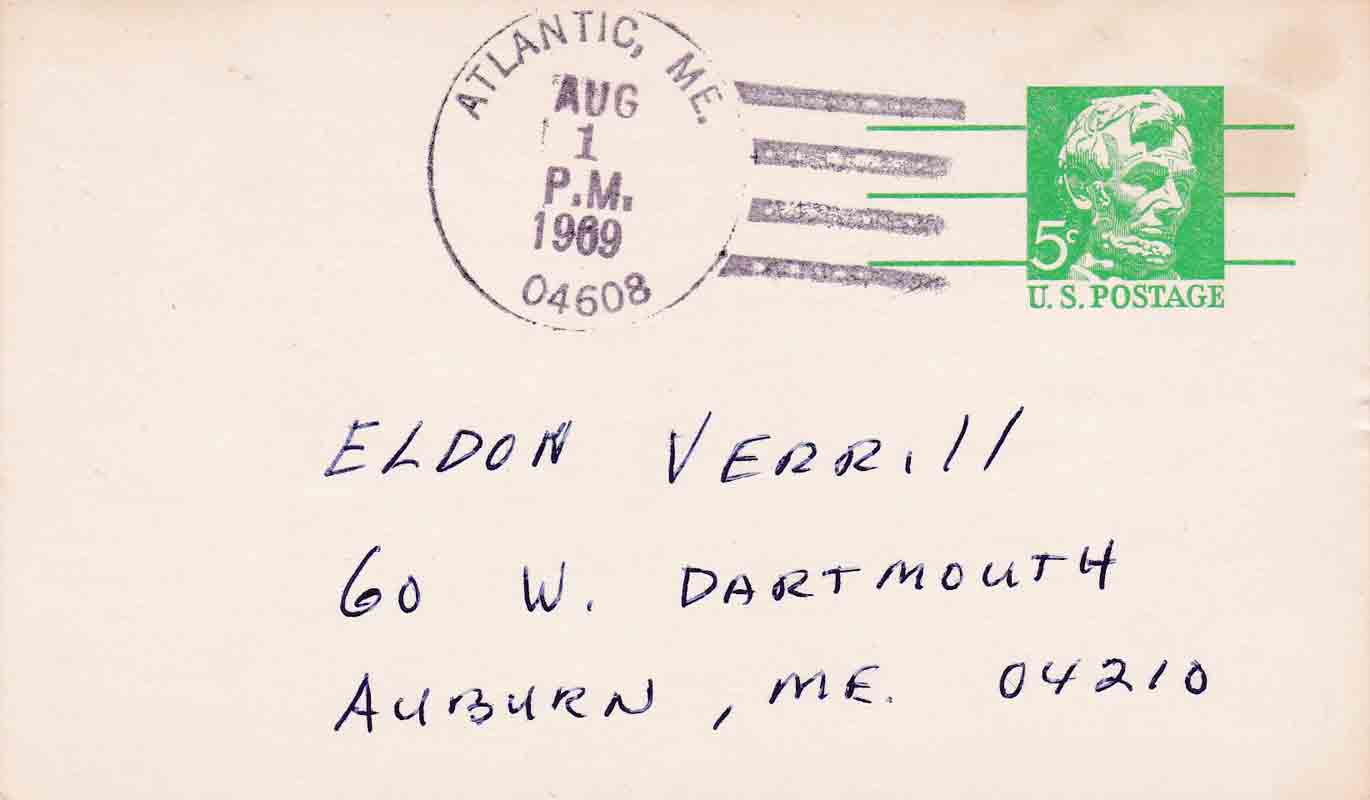 ATLANTIC, ME.
AUG
1
P.M.
1969
04608
5c
U.S. POSTAGE
ELDON VERRill
60 W. DARTMOUTH
AUBURN, ME. 04210